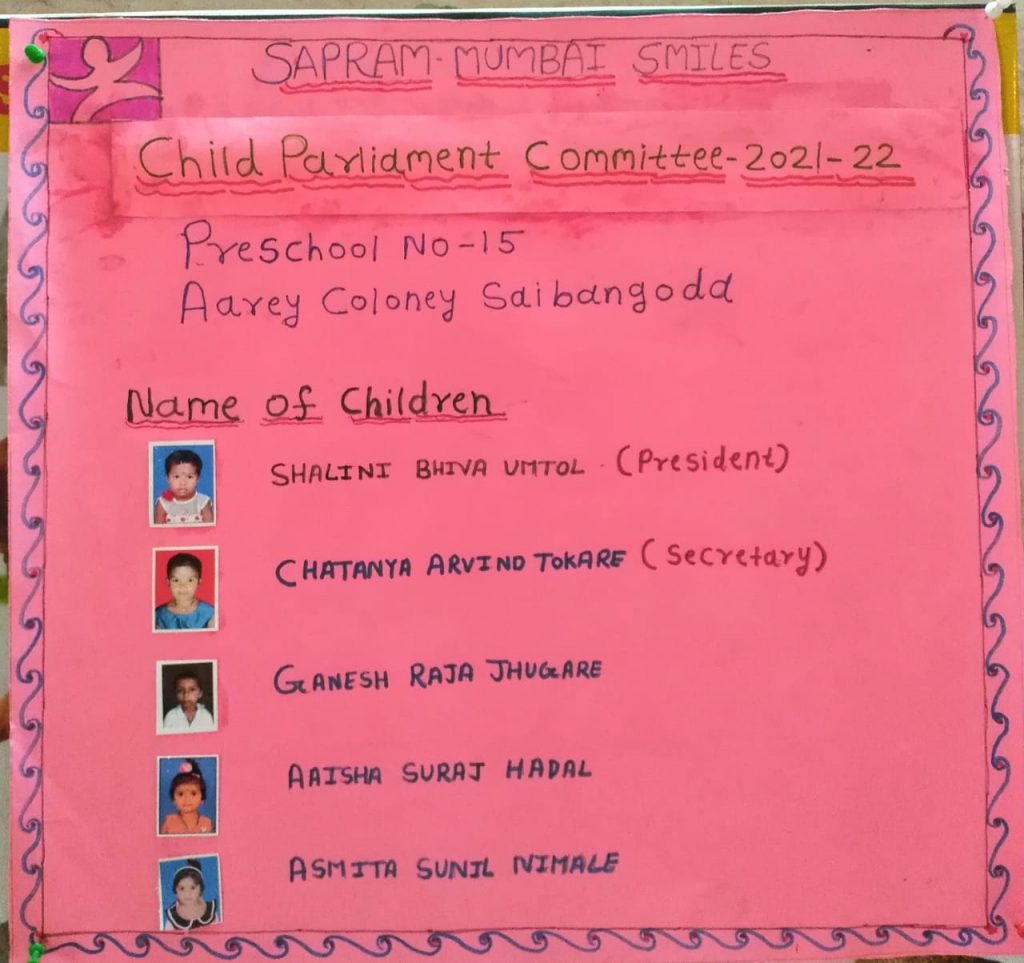 SAPRAM-MUMBAI SMILES
Child Parliament Committee-2021-22
Preschool No-15
Aarey Coloney Saibangoda
Name of Children
SHALINI BHIVA UMTOL. (President)
CHATANYA ARVIND TOKARE (Secretary)
GANESH RAJA JHUGARE
AAISHA SURAJ HADAL
ASMITA SUNIL NIMALE